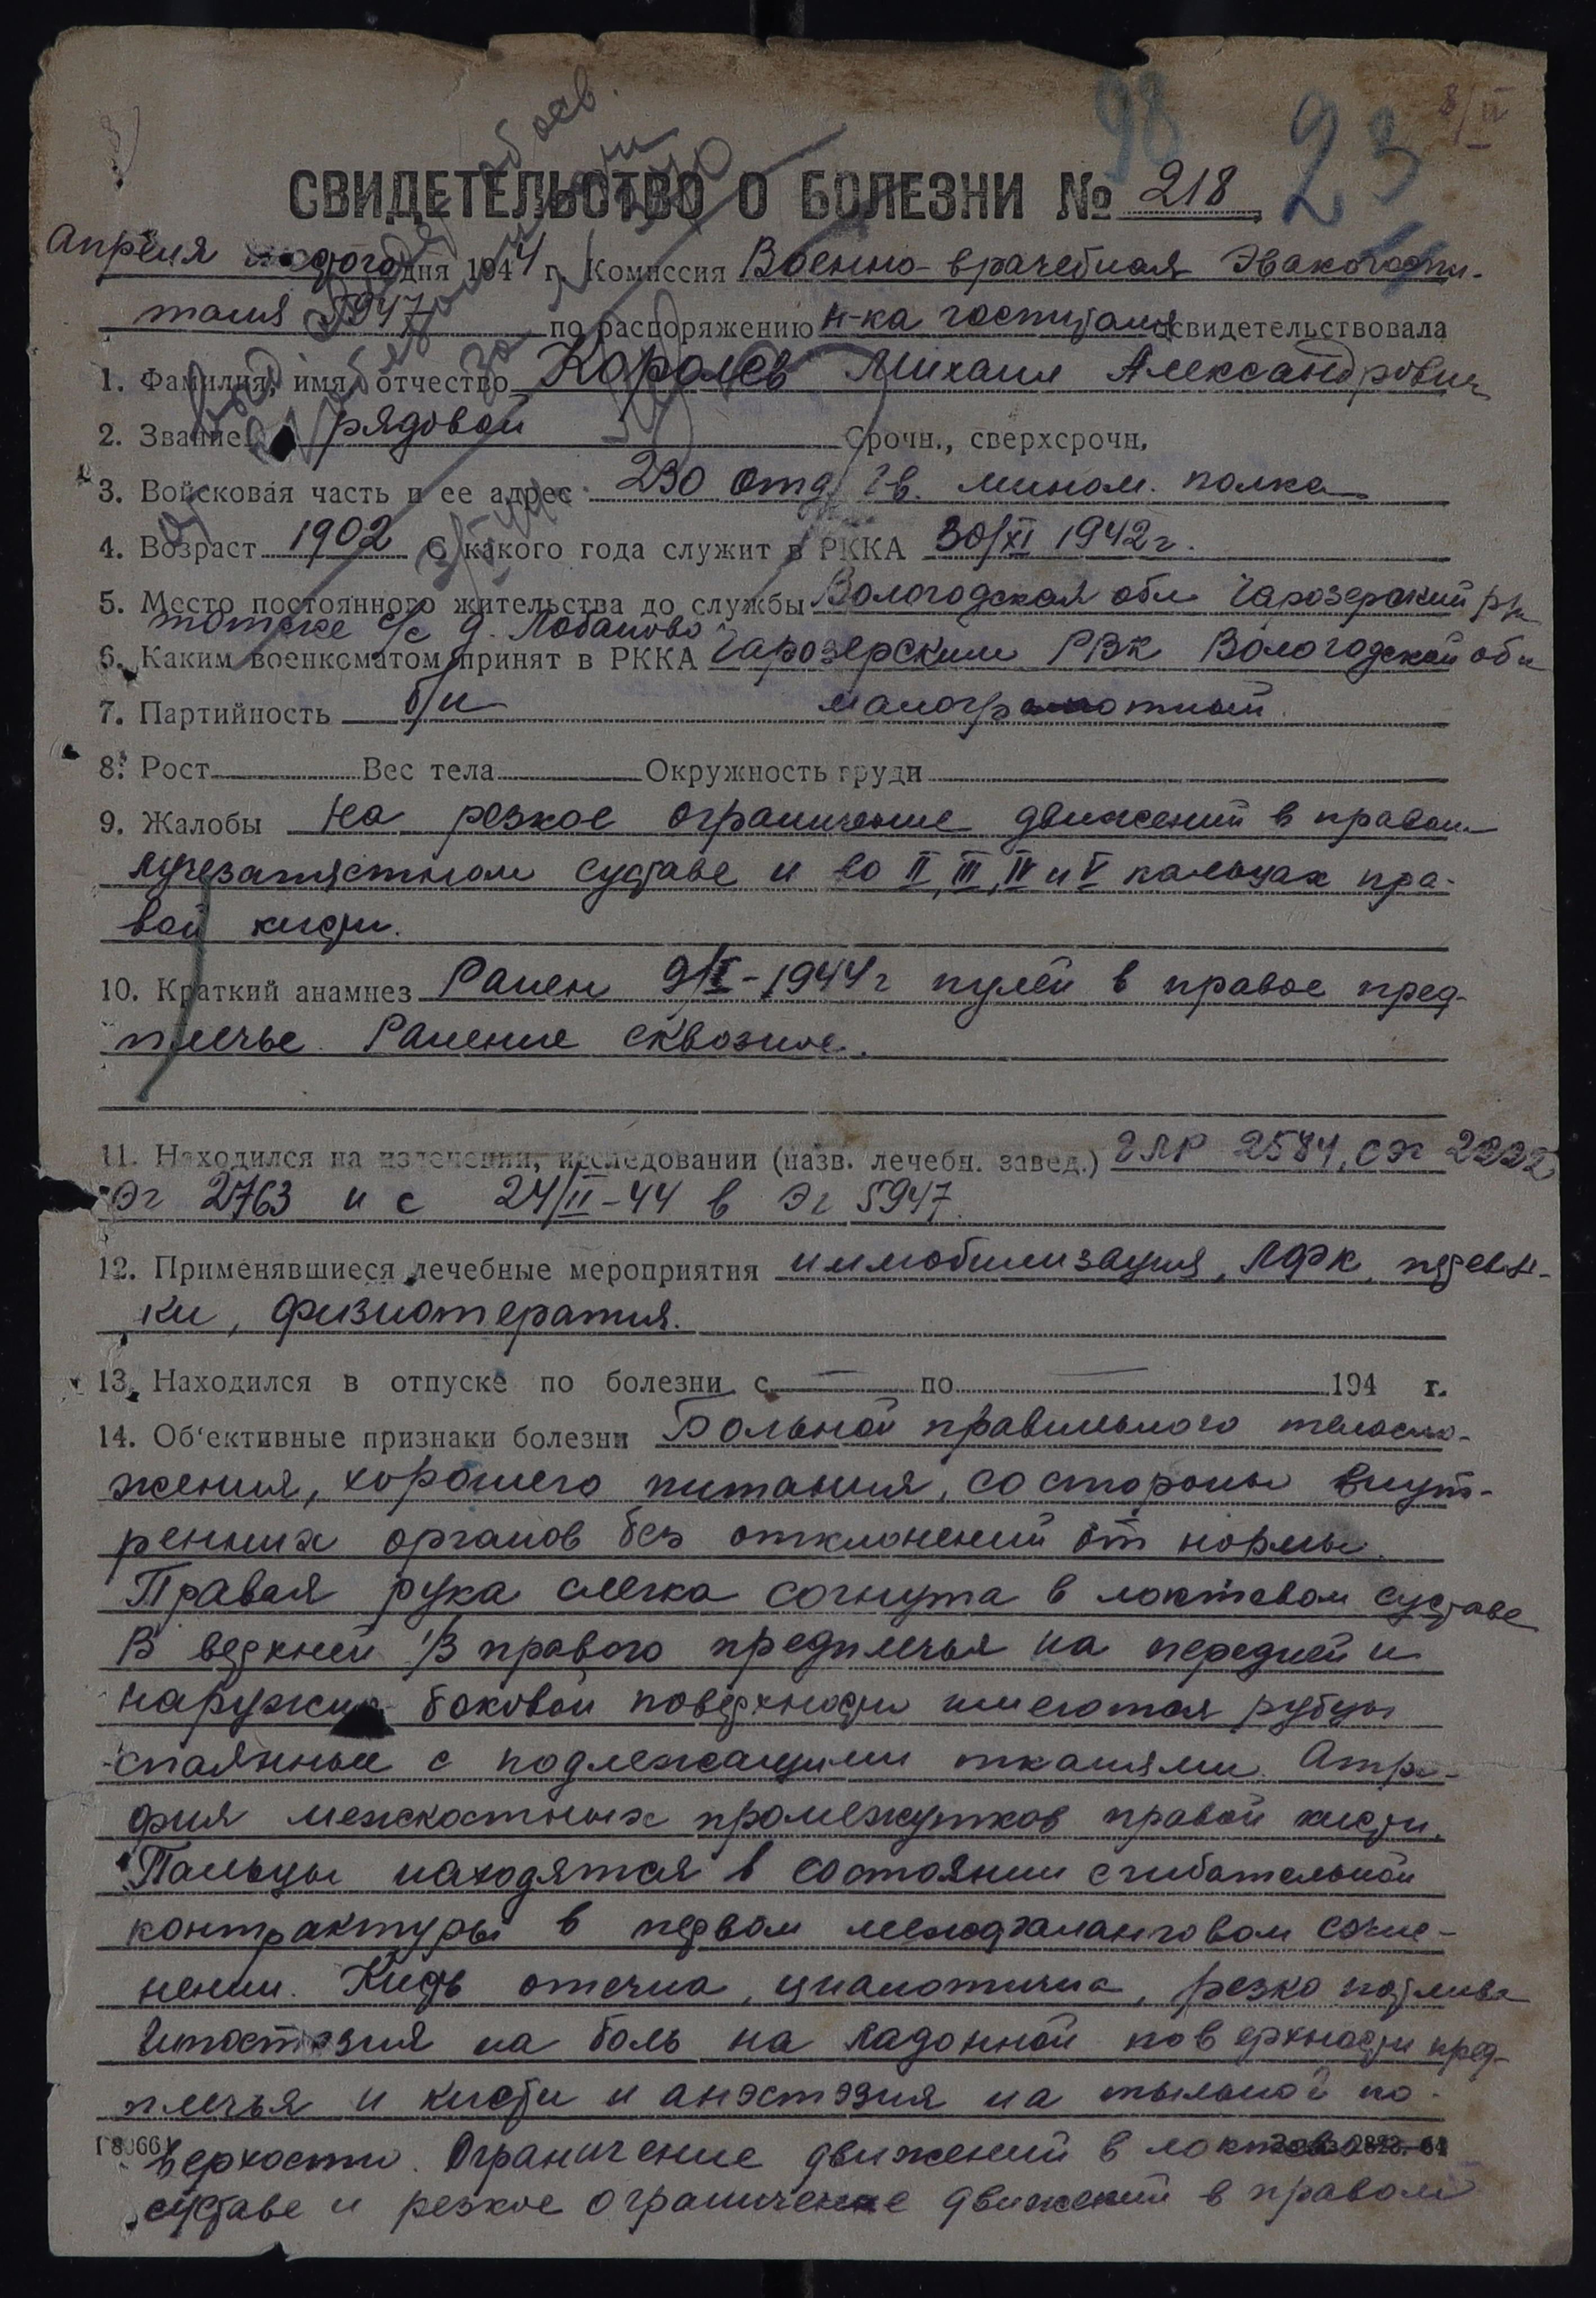 98 23 8/IV
СВИДЕТЕЛЬСТВО О БОЛЕЗНИ № 218
Апреля дня 1944 г. Комиссия Военно-врачебная Эвакогоспи-
таля 5947 по распоряжению н-ка госпиталя освидетельствовала
1. Фамилия, имя, отчество Королев Михаил Александрович
2. Звание рядовой Срочн., сверхсрочн.
3. Войсковая часть и ее адрес 230 отд. Гв. мином. полка
4. Возраст 1902 С какого года служит в РККА 30/XI 1942 г.
5. Место постоянного жительства до службы Вологодская обл Чарозерский р-н
с/с д. Лобаново
6. Каким военкоматом принят в РККА Чарозерским РВК Вологодской обл
7. Партийность б/п малограмотный
8. Рост Вес тела Окружность груди
9. Жалобы На резкое ограничение движений в правом
лучезапястном суставе и во II, III, IV и V пальцах пра-
вой кисти.
10. Краткий анамнез Ранен 9/I-1944 г пулей в правое пред-
плечье. Ранение сквозное.
11. Находился на излечении, исследовании (назв. лечебн. завед.) ГЛР 2584, СЭГ 2222
ЭГ 2763 и с 24/II-44 в ЭГ 5947.
12. Применявшиеся лечебные мероприятия иммобилизация, ЛФК, перевяз-
ки, физиотерапия.
13. Находился в отпуске по болезни с — по — 194 г.
14. Об'ективные признаки болезни Больной правильного телосло-
жения, хорошего питания, со стороны внут-
ренних органов без отклонений от нормы.
Правая рука слегка согнута в локтевом суставе
В верхней 1/3 правого предплечья на передней и
наружно боковой поверхности имеются рубцы
спаянные с подлежащими тканями. Атро-
фия межкостных промежутков правой кисти.
Пальцы находятся в состоянии сгибательной
контрактуры в первом межфаланговом сочле-
нении. Кисть отечна, цианотична, резко потлива
Гипостезия на боль на ладонной поверхности пред-
плечья и кисти и анэстэзия на тыльной по-
верхости. Ограничение движений в локтевом
суставе и резкое ограничение движений в правом